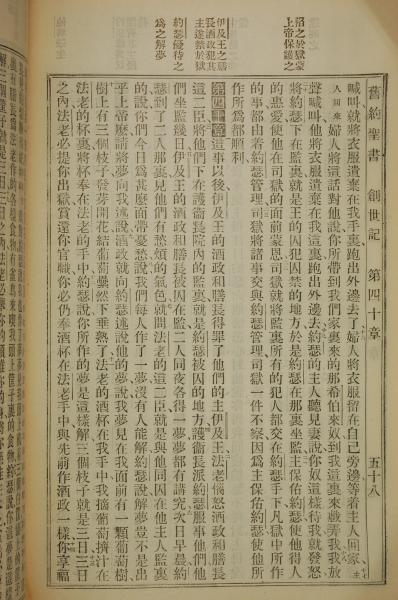 舊約聖書 創世記 第四十章 五十八
囚之於獄蒙
上帝保護之
伊及王之
長酒政犯其
主遂禁於獄
約瑟優待之
為之解夢
喊叫就將衣服遺棄在我手裏跑出外邊去了婦人將衣服留在自己旁邊等着主人回家主
人回來婦人將這話對他說你所帶到我們家裏來的那希伯來奴到我這裏來戲弄我我放
聲喊叫他將衣服遺棄在我這裏跑出外邊去約瑟的主人聽見妻說你奴這樣待我就發怒
將約瑟下在監裏就是王的囚犯囚禁的地方於是約瑟在那裏坐監主保佑約瑟使他得人
的惠愛使他在司獄的面前蒙恩司獄就將監裏所有的犯人都交在約瑟手下凡獄中所作
的事都由着約瑟管理司獄將諸事交與約瑟管理司獄一件不察因為主保佑約瑟使他所
作所為都順利
第四十章這事以後伊及王的酒政和膳長得罪了他們的主伊及王法老惱怒酒政和膳長
這二臣將他們下在護衞長院內的監裏就是約瑟被囚的地方護衞長派約瑟服事他們他
們坐監幾日伊及王的酒政和膳長被囚在監二人同夜各得一夢夢都有講究次日早晨約
瑟到了二人那裏見他們有愁煩的氣色就問法老的這二臣就是與他同囚在他主人監裏
的說你們今日為甚麼面帶憂愁說我們每人作了一夢沒有人能解約瑟說解夢豈不是出
乎上帝麼請將夢向我述說酒政就向約瑟述說他的夢說我夢見在我面前有一顆葡萄樹
樹上有三個枝子發芽開花結葡萄纍然下垂熟了法老的酒杯在我手中我摘葡萄擠汁在
法老的杯裏將杯奉在法老的手中約瑟說你所作的夢是這樣解三個枝子就是三日三日
之內法老必提你出獄賞還你官職你必仍奉酒杯在法老手中與先前作酒政一樣你享福